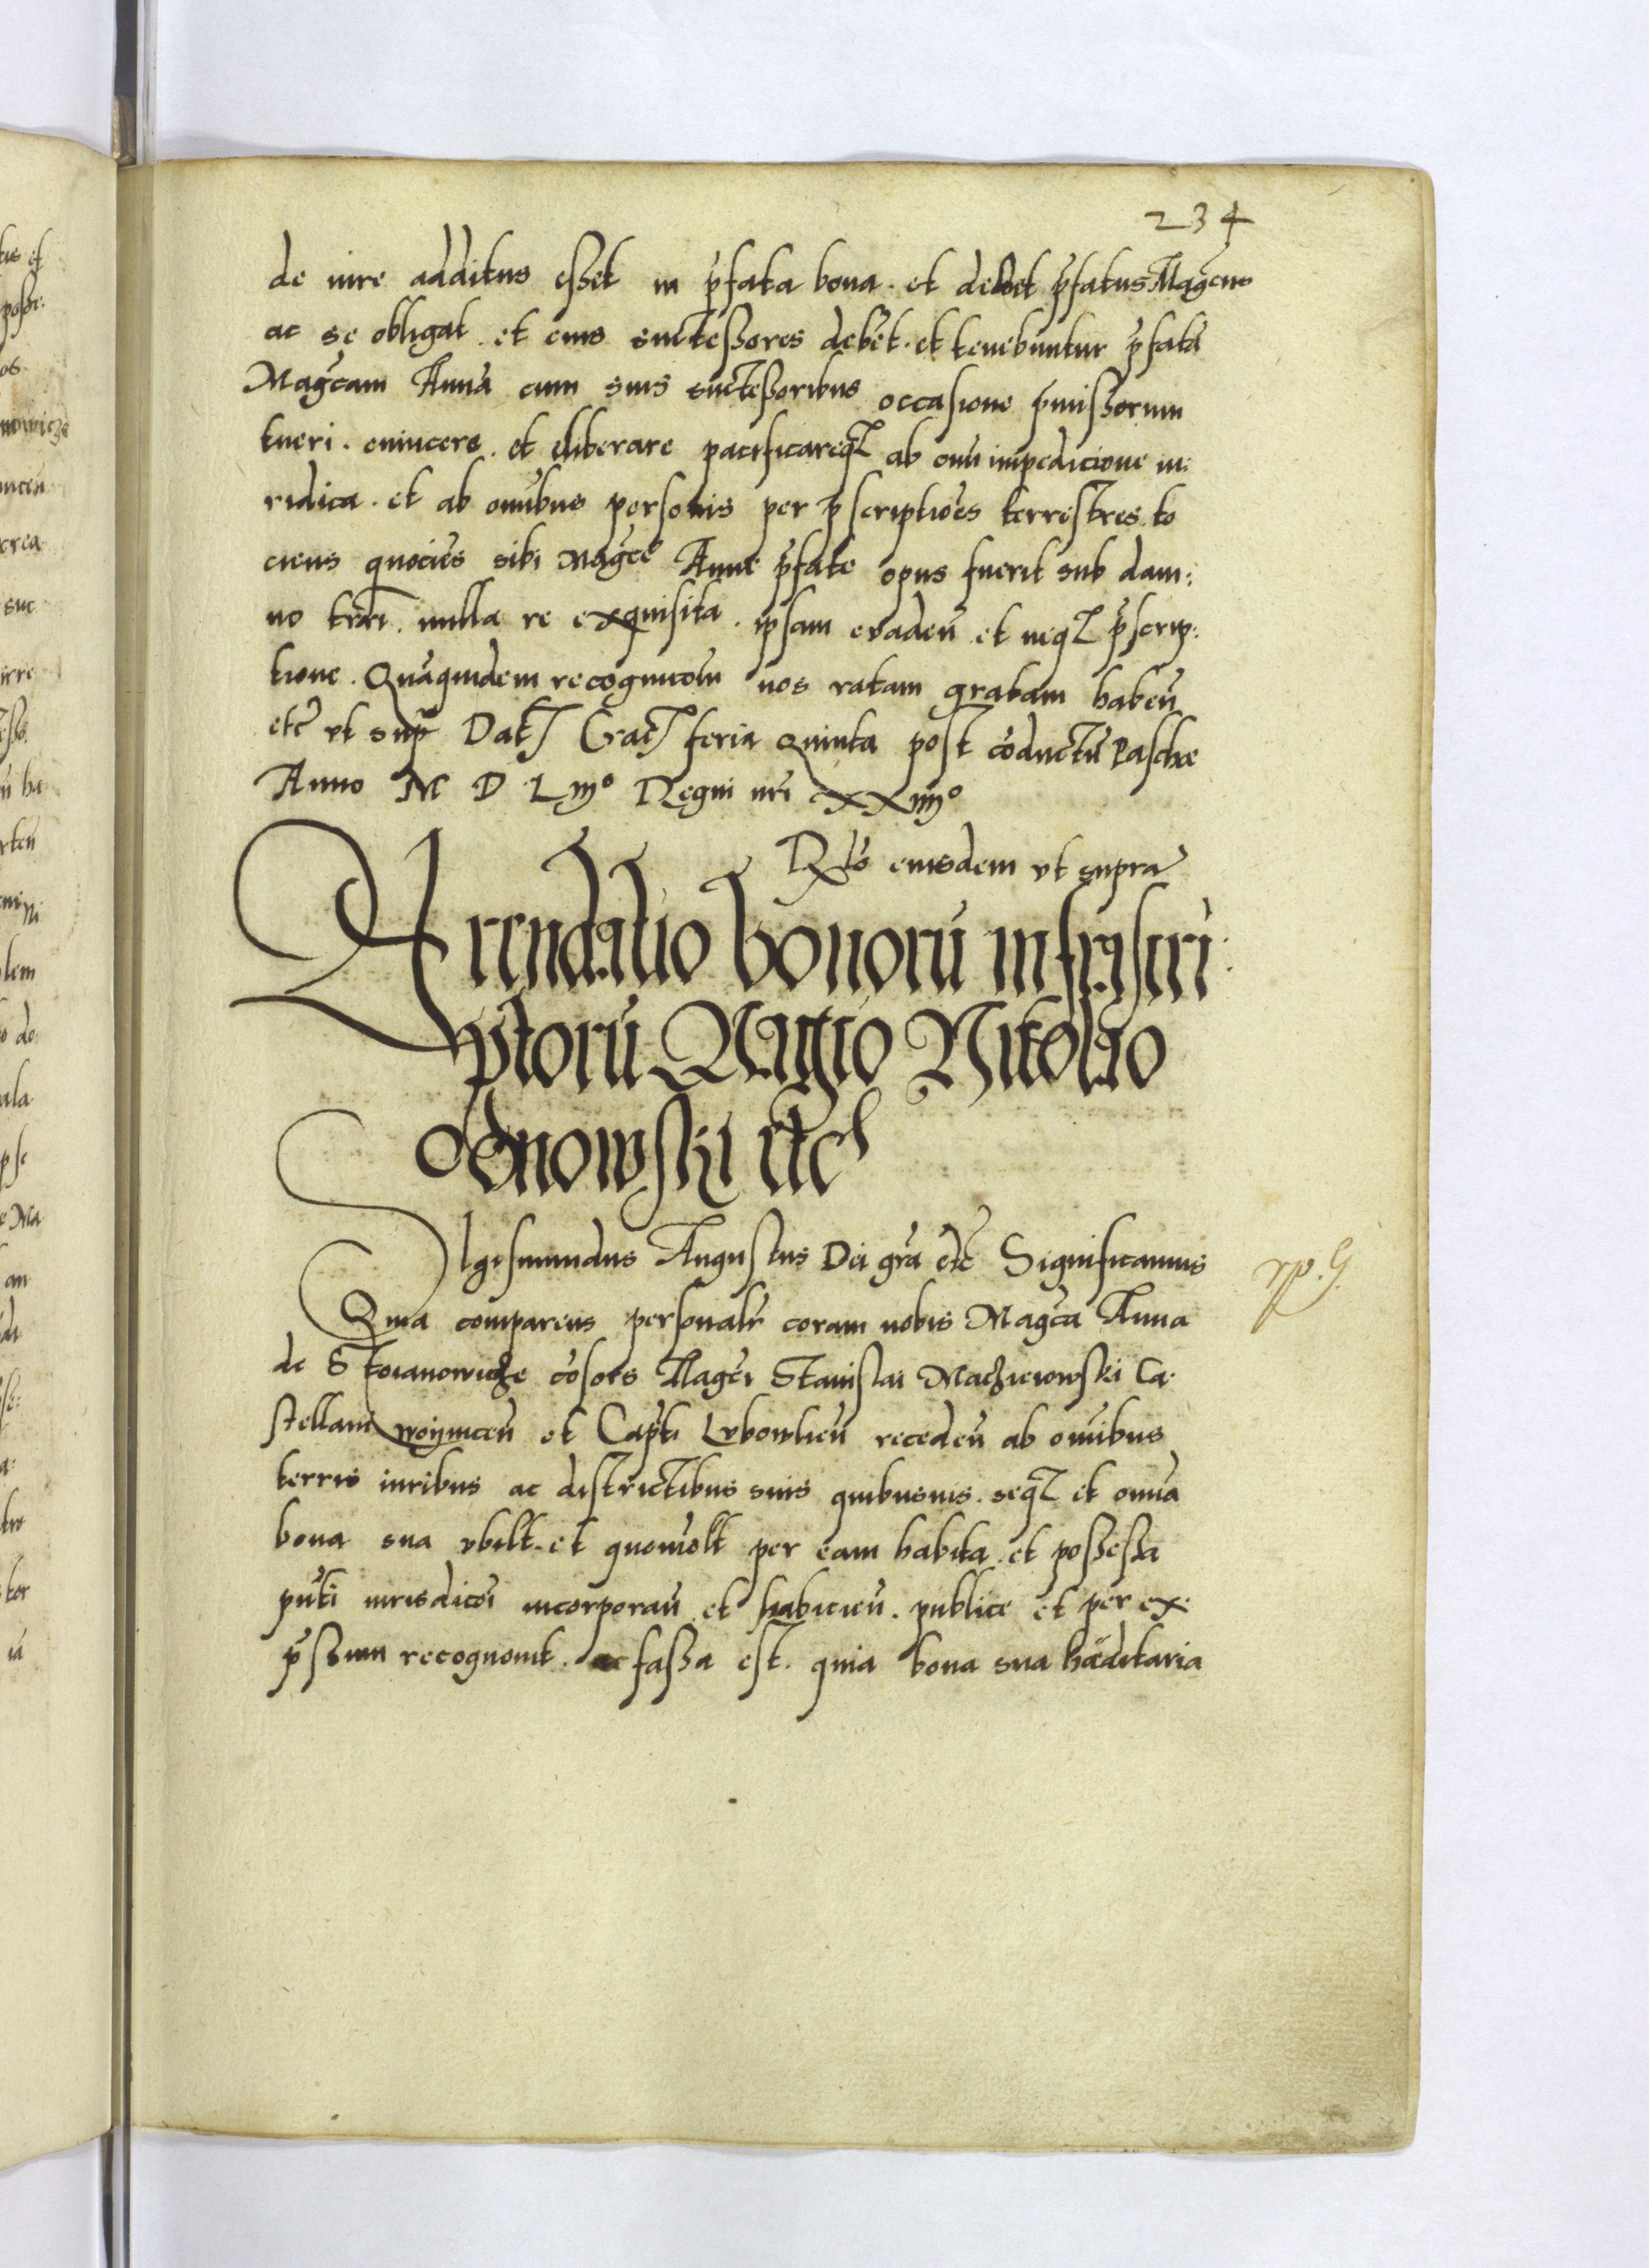 234
de iure additus esset in p̄fata bona. et debet p̄fatus Mag̃cus
ac se obligat. et eius successores debẽt. et tenebuntur p̄fatã
Mag̃cam Annã cum suis successoribus occasione p̄missorum
tueri. euincere. et eliberare pacificareq̃ ab omĩ impedicione iu:
ridica. et ab omĩbus personis per p̄scriptiões terrestres to
ciens quociẽs sibi Mag̃ce Anne p̄fate opus fuerit sub dam:
no trãri. nulla re exquisita. ipsam euadeñ et neq̃ p̄scrip:
tione. Quãquidem recognitõm nos ratam gratam habeñ
etc̃ vt sup̃ Dat̃ Crac̃ feria quinta post cõductũ Pasche
Anno M D L iijº Regni nr̃i XXiiijº
Rltõ eiusdem vt supra
Arendatio bonorũ infrascri:
ptorũ Mag̃co Nicolao
Odnowski etc̃
Sigismundus Augustus Dei gr̃a etc̃ Significamus
rp. G.
Quia comparens personalr̃ coram nobis Mag̃ca Anna
de Stoianowicze cõsors Mag̃ci Stanislai Macziewski Ca:
stellani woijniceñ et Capt̃i Lubowlieñ recedeñ ab omĩbus
terris iuribus ac districtibus suis quibusuis. seq̃ et omĩa
bona sua vbilt̃. et quomõlt̃ per eam habita. et possessa
pñti iurisdicõi incorporañ et subicieñ. publice et per ex:
p̄ssum recognouit. ac fassa est. quia bona sua hæditaria